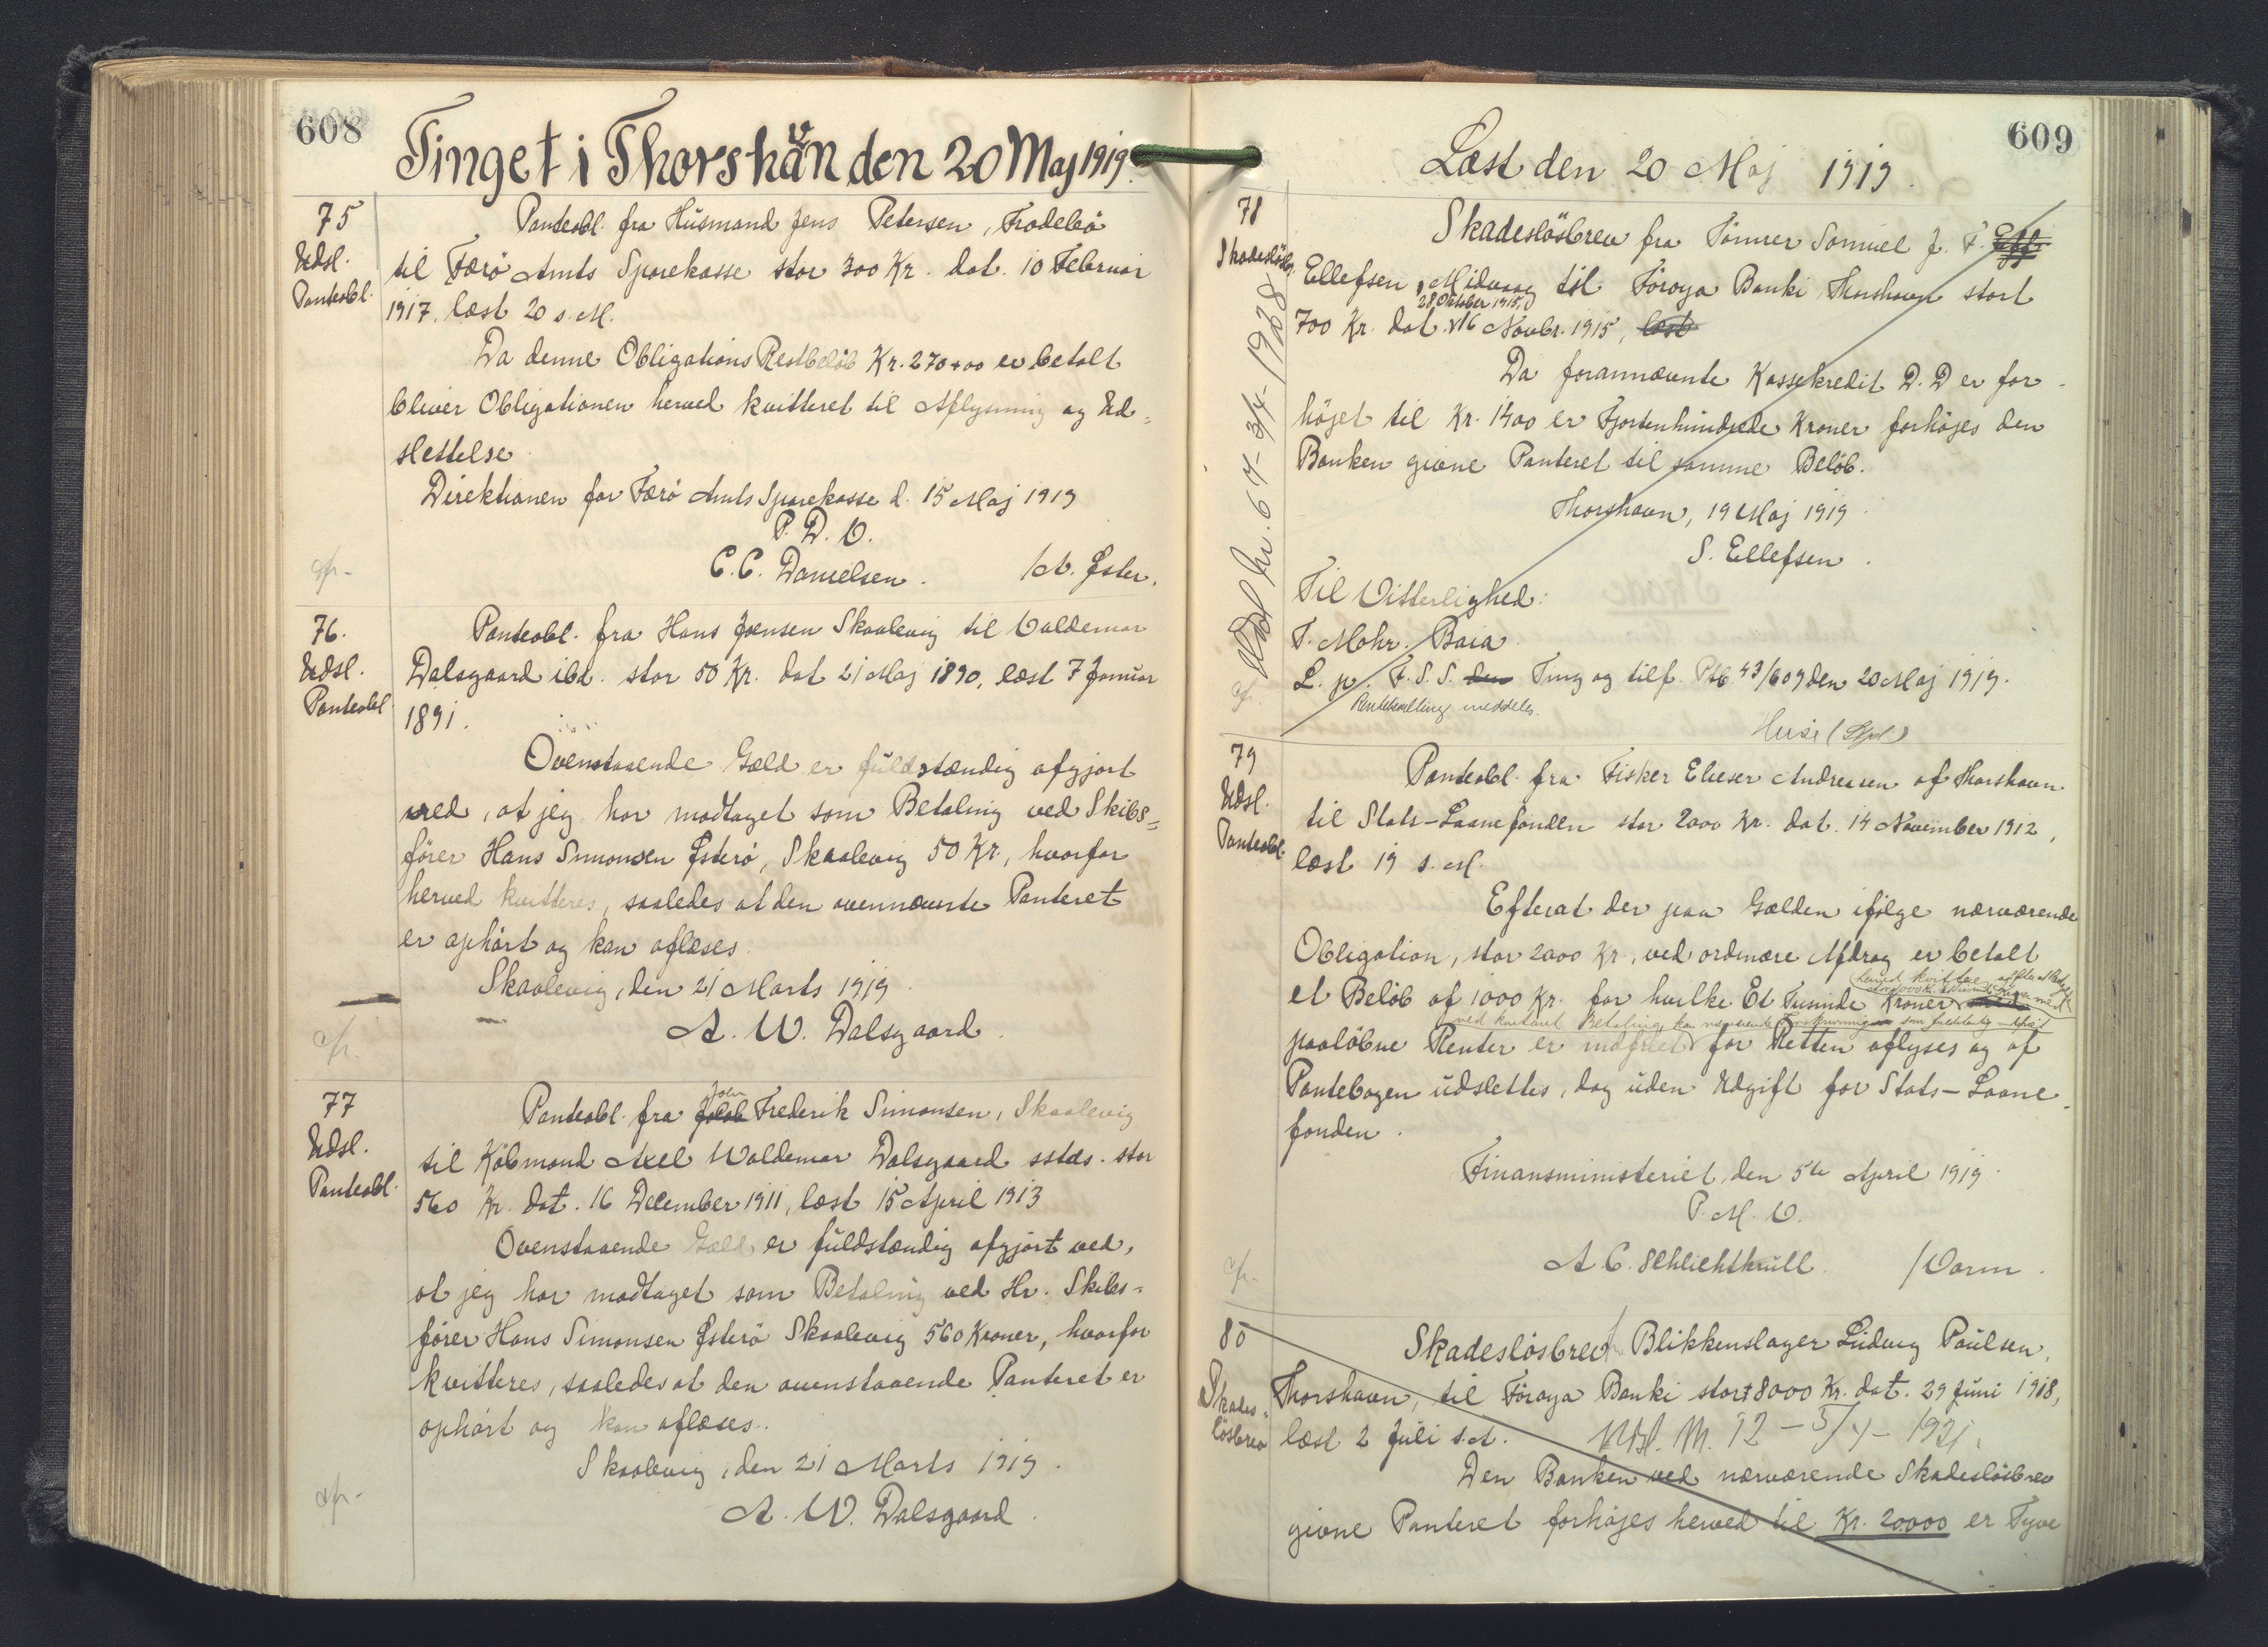 608
Tinget i Thorshavn den 20 Maj 1919.
75
Udsl.
Panteobl.
Panteobl. fra Husmand Jens Petersen, Frodebö
til Færö Amts Sparekasse stor 300 Kr. dat. 10 Februar
1917, læst 20 s. M.
Da denne Obligations Restbelöb Kr. 270+00 er betalt
bliver Obligationen herved kvitteret til Aflysning og Ud=
slettelse
Direktionen for Færö Amts Sparekasse d. 15 Maj 1919
P. D. V.
C. C. Danielsen. /A. Öster.
76.
Udsl.
Panteobl
Panteobl. fra Hans Joensen Skaalevig til Valdemar
Dalsgaard ibd. stor 50 Kr. dat 21 Maj 1890, læst 7 Januar
1891.
Ovenstaaende Gæld er fuldstændig afgjort
ved, at jeg har modtaget som Betaling ved Skibs=
förer Hans Simonsen Österö, Skaalevig 50 Kr., hvorfor
herved kvitteres, saaledes at den ovennævnte Panteret
er ophört og kan aflæses
Skaalevig, den 21 Marts 1919.
A. W. Dalsgaard.
77
Udsl.
Panteobl.
Joen
Panteobl. fra Jakob Frederik Simonsen, Skaalevig
til Köbmand Axel Waldemar Dalsgaard sstds. stor
560 Kr. dat. 16 December 1911, læst 15 April 1913
Ovenstaaende Gæld er fuldstændig afgjort ved,
at jeg har modtaget som Betaling ved Hr. Skibs=
förer Hans Simonsen Österö Skaalevig 560 Kroner, hvorfor
kvitteres, saaledes at den ovenstaaende Panteret er
ophört og kan aflæses.
Skaalevig, den 21 Marts 1919.
A. W. Dalsgaard.
609
Læst den 20 Maj 1919.
78
Skadeslösbr.
Udsl. Nr. 67 - 3/4 - 1928
Skadeslösbrev fra Tömrer Samuel J. F. Eff
Ellefsen, Midvaag til Föroya Banki Thorshavn stort
28 Oktober 1915,
700 Kr. dat. 16 Novbr. 1915, læst
Da forannævnte Kassekredit D. D er for-
höjet til Kr. 1400 er Fjortenhundrede Kroner forhöjes den
Banken givne Panteret til samme Belöb.
Thorshavn, 19 Maj 1919.
S. Ellefsen.
Til Vitterlighed:
F. Mohr. Baia
L. p. F. S. S. den Ting og tilf. Ptb 43/609 den 20 Maj 1919.
meddeles.
79
Udsl.
Panteobl.
Panteobl. fra Fisker Elieser Andreasen af Thorshavn
til Stats-Laanefonden stor 2000 Kr. dat. 14 November 1912,
læst 19 s. M.
Efterat der paa Gælden ifölge nærværende
Obligation, stor 2000 Kr., ved ordinære Afdrag er betalt
et Belöb af 1000 Kr. for hvilke Et Tusinde Kroner
ved kontant Betaling, kan nærværende
paalöbne Renter er indfriet for Retten aflyses og af
Pantebogen udslettes, dog uden Udgift for Stats-Laane
fonden.
Finansministeriet, den 5te April 1919.
P. M. V.
A C. Schlichtkrull. /Worm.
80
Skades=
lösbrev
Skadeslösbrev f Blikkenslager Ludvig Poulsen,
Thorshavn, til Föroya Banki stort 8000 Kr. dat. 29 Juni 1918,
læst 2 Juli s. A. Udsl. Nr. 92 - 5/4 - 1921.
Den Banken ved nærværende Skadeslösbrev
givne Panteret forhöjes herved til Kr. 20000 er Tyve